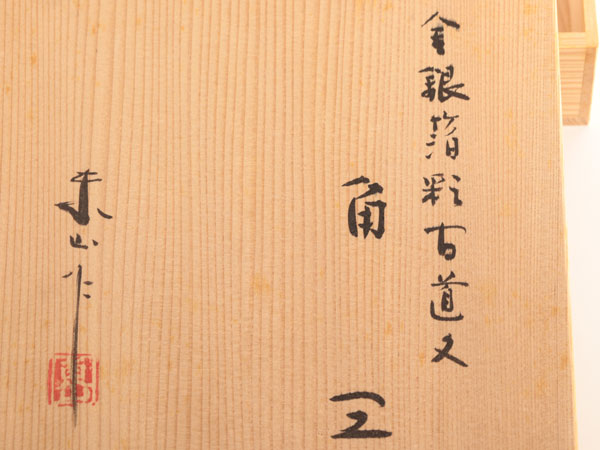 金銀箔彩古道文
角皿
朱山作